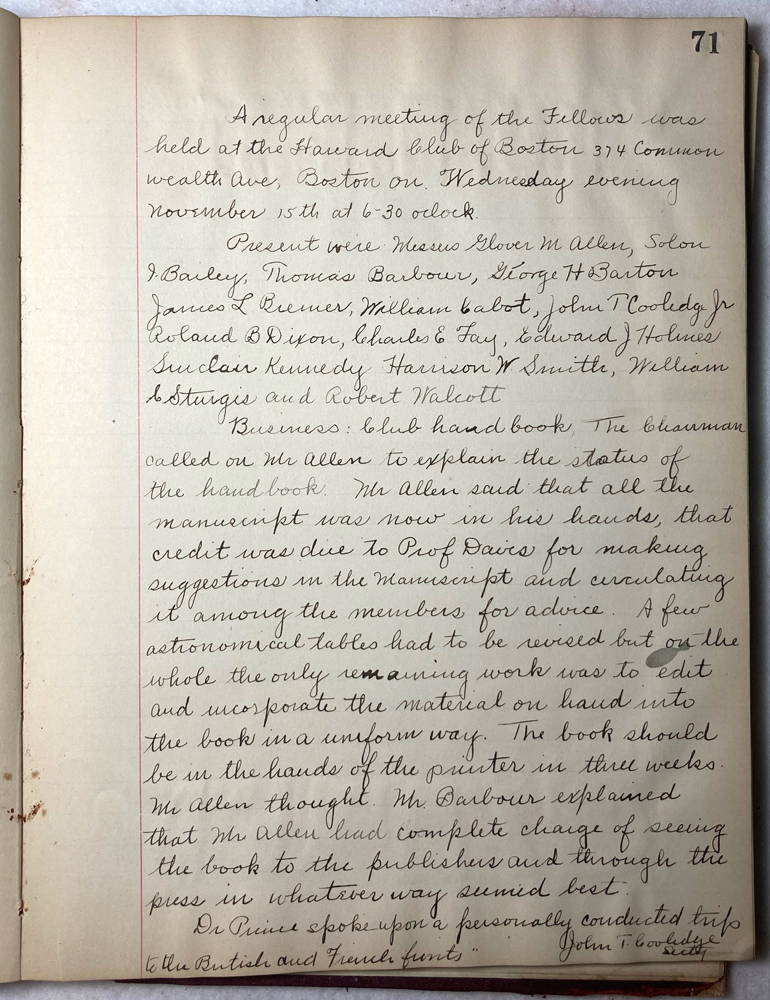 71
A regular meeting of the Fellows was
held at the Harvard Club of Boston 374 Common
wealth Ave, Boston on. Wednesday evening
November 15th at 6-30 oclock.
Present were Messrs Glover M Allen, Solon
I. Bailey, Thomas Barbour, George H Barton
James L Bremer, William Cabot, John T Coolidge Jr
Roland B Dixon, Charles E Fay, Edward J Holmes
Sinclair Kennedy Harrison W Smith, William
C Sturgis and Robert Walcott
Business: Club hand book, The Chairman
called on Mr Allen to explain the status of
the handbook. Mr Allen said that all the
manuscript was now in his hands, that
credit was due to Prof Davis for making
suggestions in the Manuscript and circulating
it among the members for advice. A few
astronomical tables had to be revised but on the
whole the only remaining work was to edit
and incorporate the material on hand into
the book in a uniform way. The book should
be in the hands of the printer in three weeks.
Mr Allen thought. Mr. Barbour explained
that Mr Allen had complete charge of seeing
the book to the publishers and through the
press in whatever way seemed best.
Dr Prince spoke upon a personally conducted trip
to the British and French fronts"
John T. Coolidge
Secty